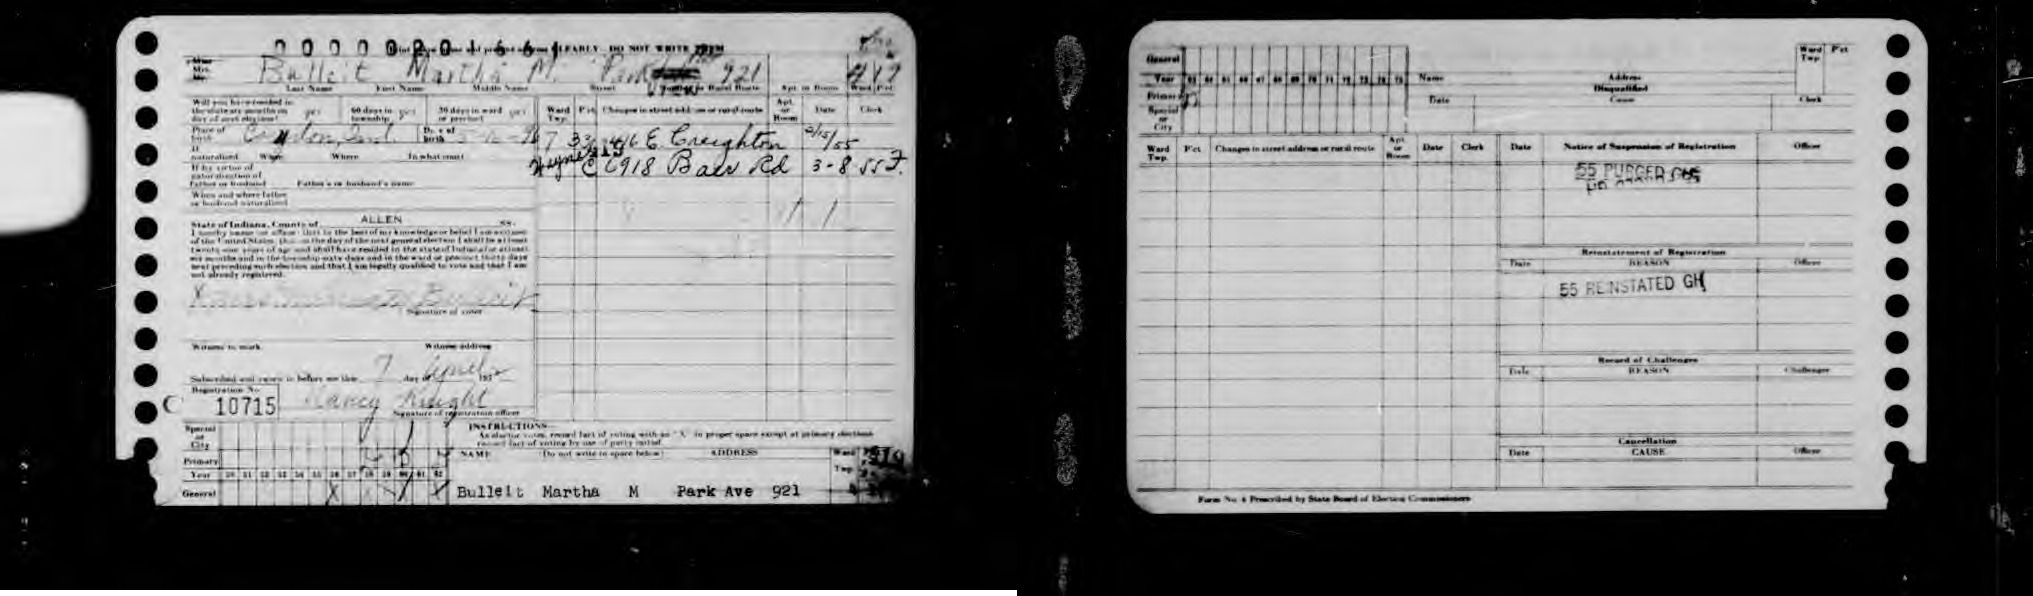 0 0 0 0 0 2 0 1 5 6
CLEARLY DO NOT WRITE
Bulleit Martha M. Park 921
Last Name First Name Middle Name Street Number or Rural Route Apt. or Room Ward Pct
Will you have resided in the state six months on day of next election? yes 60 days in township yes 30 days in ward or precinct yes
Ward Twp. P'ct. Changes in street address or rural route Apt. or Room Date Clerk
Place of birth Ind. Date of birth
7 33 416 E. Creighton 2/15/55
If naturalized When Where In what court
Wayne C 6918 Baer Rd 3-8 55 F.
If by virtue of naturalization of Father or husband Father's or husband's name
When and where father or husband naturalized
State of Indiana, County of ALLEN ss.
I hereby swear (or affirm) that to the best of my knowledge or belief I am a citizen
of the United States, that on the day of the next general election I shall be at least
twenty-one years of age and shall have resided in the state of Indiana for at least
six months and in the township sixty days and in the ward or precinct thirty days
next preceding such election and that I am legally qualified to vote and that I am
not already registered.
X Bulleit
Signature of voter
Witness to mark Witness address
Subscribed and sworn to before me this 7 day of April 195
Registration No.
C 10715 Nancy Knight
Signature of registration officer
INSTRUCTIONS
As elector votes, record fact of voting with an "X" in proper space except at primary elections
record fact of voting by use of party initial.
Special or City
Primary
NAME (Do not write in space below) ADDRESS Ward Twp.
Year 50 51 52 53 54 55 56 57 58 59 60 61 62
General X X X Bulleit Martha M Park Ave 921
General
Year 63 64 65 66 67 68 69 70 71 72 73 74 75
Name Address
Ward Twp. P'ct
Primary
Disqualified
Special or City
Date Cause Clerk
Ward Twp. P'ct Changes in street address or rural route Apt. or Room Date Clerk Date Notice of Suspension of Registration Officer
55 PURGED
Reinstatement of Registration
Date REASON Officer
55 REINSTATED GH
Record of Challenges
Date REASON Challenger
Cancellation
Date CAUSE Officer
Form No. 4 Prescribed by State Board of Election Commissioners